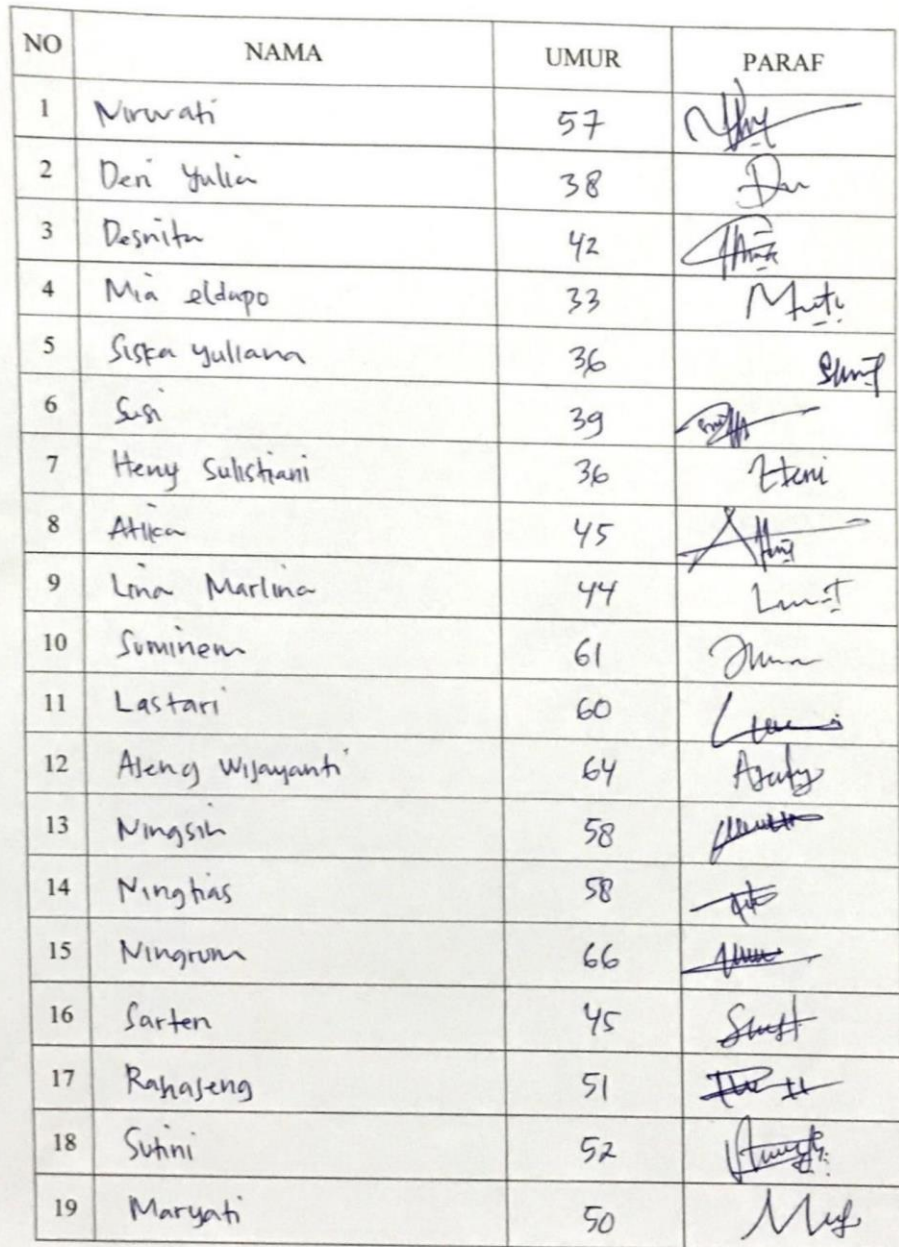 NO NAMA UMUR PARAF
1 Nirwati 57
2 Deri Yulia 38
3 Desnita 42
4 Mia eldapo 33
5 Siska yuliana 36
6 Susi 39
7 Heny Sulistiani 36 Heni
8 Atika 45
9 Lina Marlina 44
10 Suminem 61
11 Lastari 60
12 Ajeng Wijayanti 64
13 Ningsih 58
14 Ningtias 58
15 Ningrum 66
16 Sarten 45
17 Rahajeng 51
18 Sutini 52
19 Maryati 50